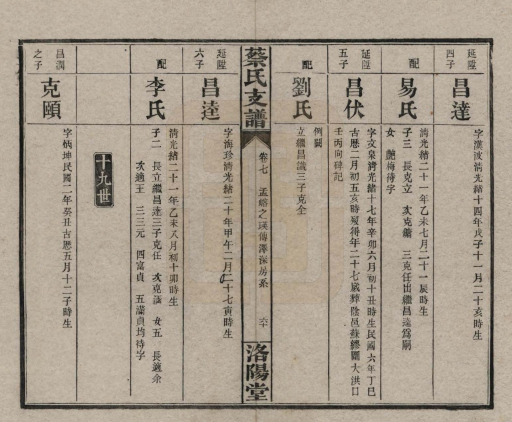 延陞四子
昌達
字漢波清光緒十四年戊子十一月二十亥時生
配
易氏
清光緒二十一年乙未七月二十一辰時生
子三 長克立 次克鏞 三克任出繼昌逵爲嗣
女 艷梅待字
延陞五子
昌伏
字文泉清光緒十七年辛卯六月初十丑時生民國六年丁巳
古歷二月初五亥時歿得年二十七歲葬陰邑蘇繆關大洪口
壬丙向碑記
配
劉氏
例闕
立繼昌議三子克全
蔡氏支譜
卷七
孟峪之瑛傳澤深房系
六十
洛陽堂
延陞六子
昌逵
字海珍清光緒二十年甲午二月二十七寅時生
配
李氏
清光緒二十一年乙未八月初十卯時生
子二 長立繼昌達三子克任 次克滿 女五 長適余
次適王 三三元 四富貞 五滿貞均待字
十九世
昌潤之子
克頤
字炳坤民國二年癸丑古歷五月十二子時生